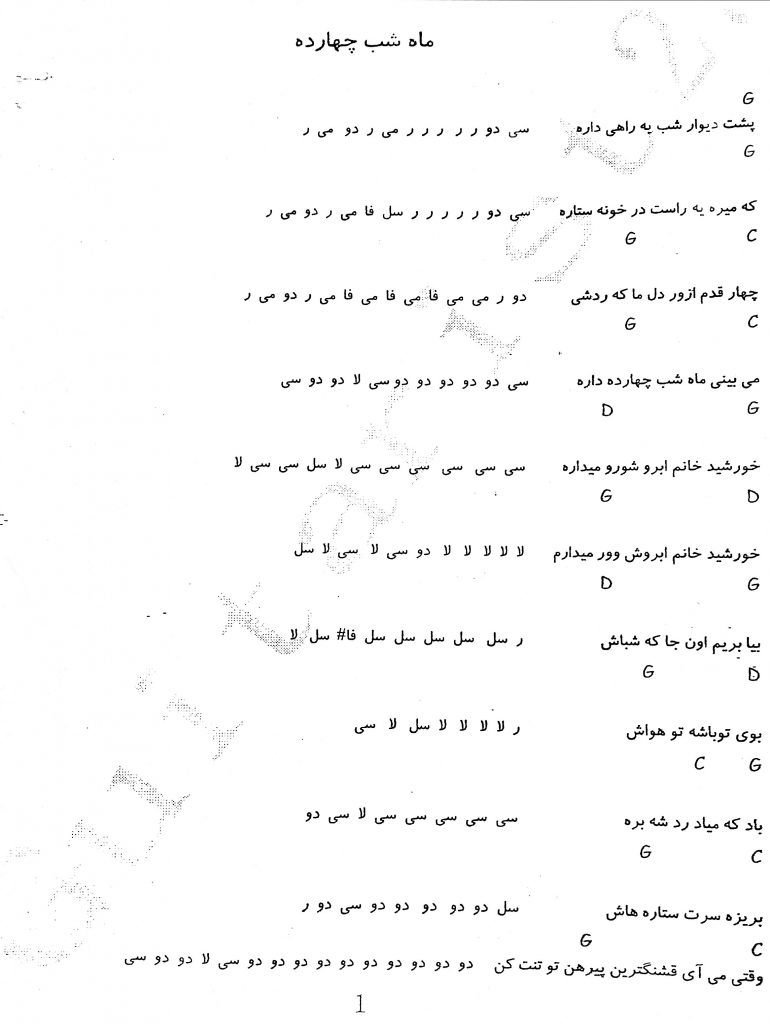 ماه شب چهارده
G
پشت دیوار شب یه راهی داره سی دو ر ر ر ر ر می ر دو می ر
G
که میره یه راست در خونه ستاره سی دو ر ر ر ر ر سل فا می ر دو می ر
C G
چهار قدم ازور دل ما که ردشی دو ر می می فا می فا می فا می ر دو می ر
C G
می بینی ماه شب چهارده داره سی دو دو دو دو دو دو سی لا دو دو سی
G D
خورشید خانم ابرو شورو میداره سی سی سی سی سی سی لا سل سی سی لا
D G
خورشید خانم ابروش وور میدارم لا لا لا لا لا دو سی لا سی لا سل
G D
بیا بریم اون جا که شباش ر سل سل سل سل سل فا# سل لا
D G
بوی توباشه تو هواش ر لا لا لا لا سل لا سی
G C
باد که میاد رد شه بره سی سی سی سی سی لا سی دو
C G
بریزه سرت ستاره هاش سل دو دو دو دو دو سی دو ر
C G
وقتی می آی قشنگترین پیرهن تو تنت کن دو دو دو دو دو دو دو دو دو دو سی لا دو دو سی
1
Guitars2